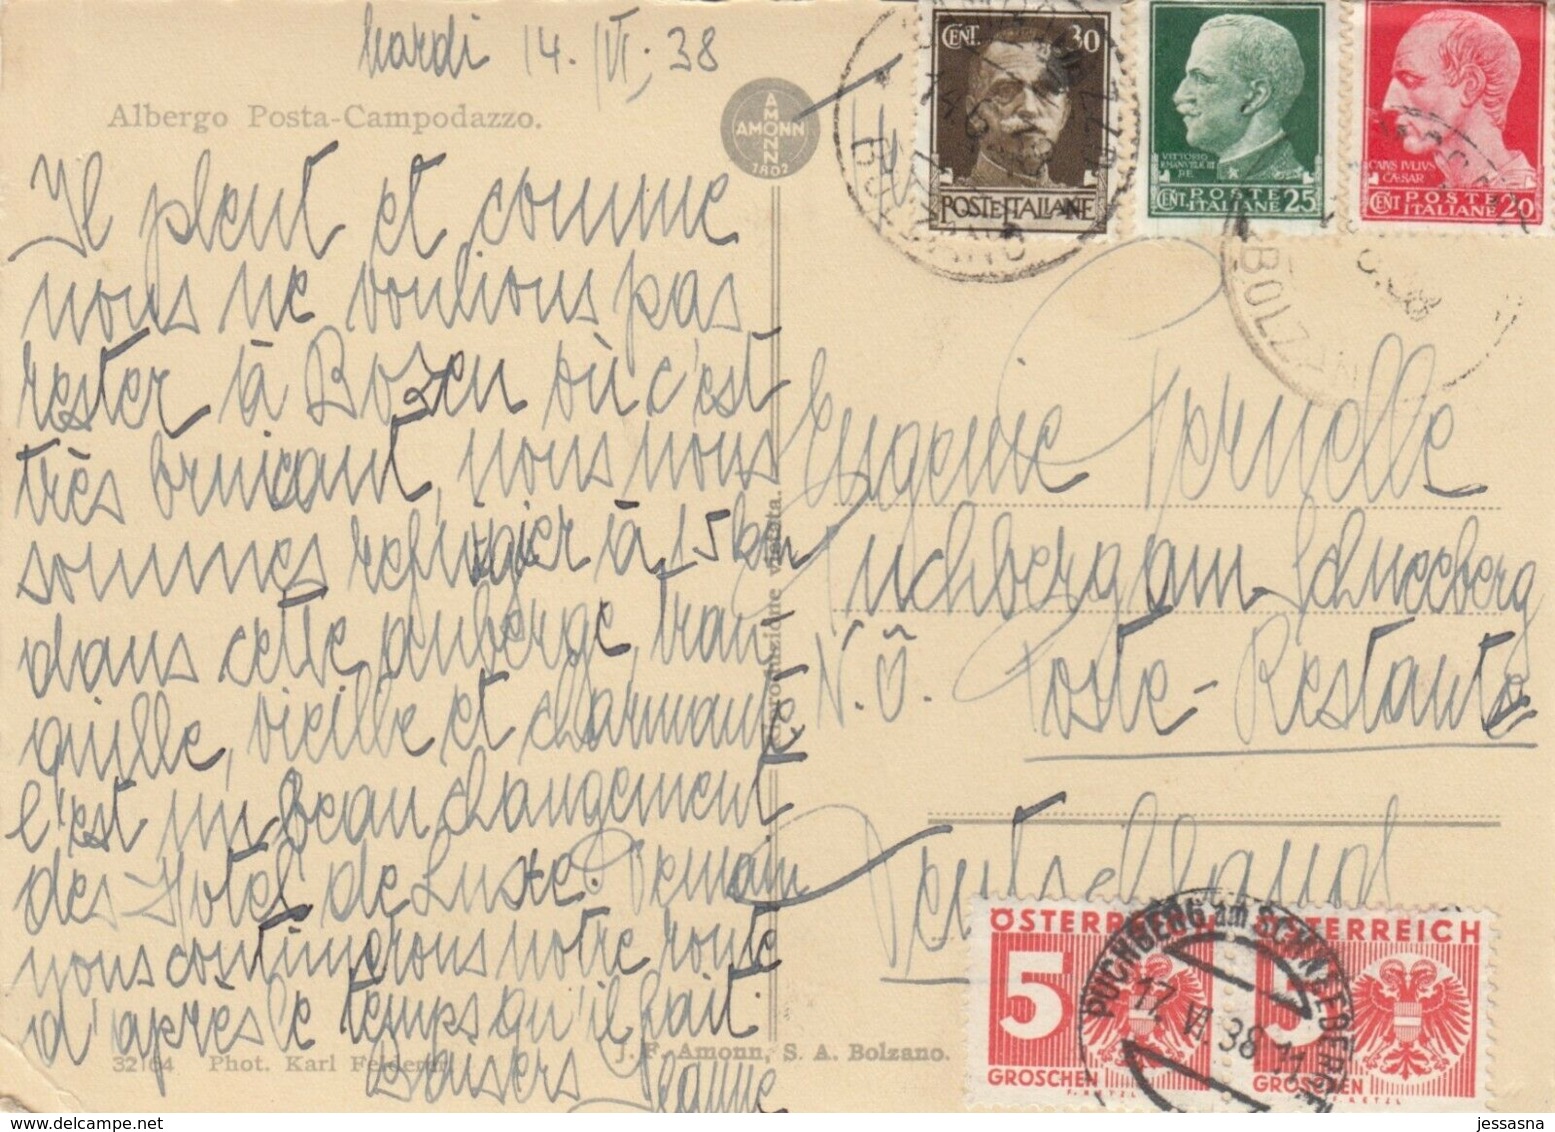 Mardi 14. VI. 38
Albergo Posta-Campodazzo.
AMONN
AMONN
1802
Il pleut et comme
nous ne voulions pas
rester à Bozen où c'est
très bruicant, nous nous
sommes refugier à 15 km
dans cette auberge, tran
quille, vieille et charmante
c'est un beau changement
des Hotels de Luxe. Demain
nous continuerons notre route
d'après le temps qu'il fait.
Baisers Jeanne
32164 Phot. Karl Felderer.
J. F. Amonn, S. A. Bolzano.
Riproduzione vietata.
CENT. 30
POSTE ITALIANE
VITTORIO
EMANUELE III
RE
CENT POSTE ITALIANE 25
CAIVS IVLIVS
CAESAR
CENT POSTE ITALIANE 20
BOLZANO
BOLZANO
Eugenie
Puchberg am Schneeberg
N.Ö. Poste-Restante
Deutschland
ÖSTERREICH
5
GROSCHEN
ÖSTERREICH
5
GROSCHEN
PUCHBERG am SCHNEEBERGE
17. VI. 38 11
jessasna